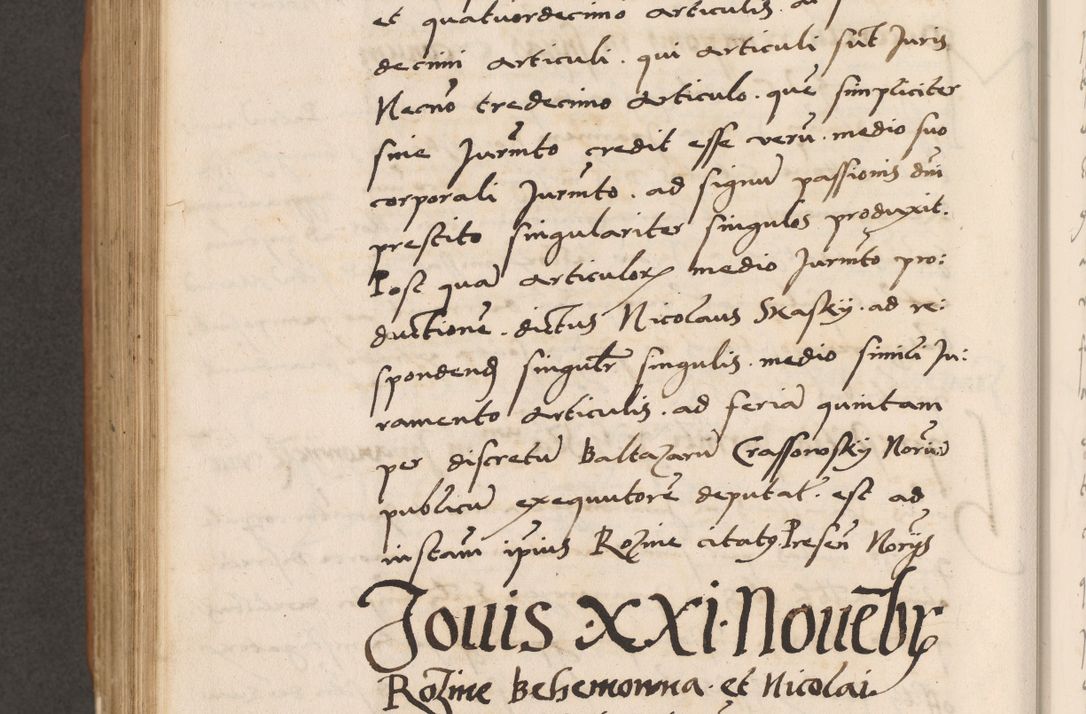 et quatuordecimo articulis. a
decimi articuli. qui articuli sūt Juris
Necnō tredecimo articulo. quē simpliciter
sine Jurm̄to credit esse verū. medio suo
corporali Jurm̄to. ad signū passionis dn̄i
prestito singulariter singulos produxit.
Post quā articuloꝝ medio Jurm̄to pro:
ductionē. dictus Nicolaus Skasky. ad re:
spondend singulr̄ singulis. medio simili Ju:
ramento articulis. ad feriā quintam
per discretū Baltazarū Crassowsky Noriū
publicū exequutorē deputat. est ad
instam̄ ipius Rozine citaty. Presen̄ Norys
Jouis XXI. Nouēbr
Rozine Behemowna. et Nicolai